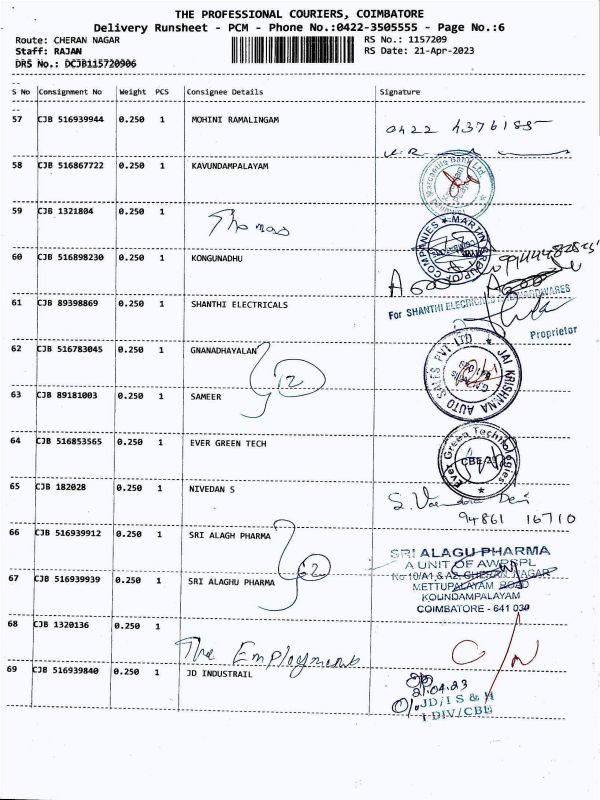 THE PROFESSIONAL COURIERS, COIMBATORE
Delivery Runsheet - PCM - Phone No.:0422-3505555 - Page No.:6
Route: CHERAN NAGAR
RS No.: 1157209
Staff: RAJAN
RS Date: 21-Apr-2023
DRS No.: DCJB115720906
S No Consignment No Weight PCS Consignee Details Signature
57 CJB 516939944 0.250 1 MOHINI RAMALINGAM
0422 4376155
58 CJB 516867722 0.250 1 KAVUNDAMPALAYAM
59 CJB 1321804 0.250 1 Thomas
MARTIN GROUP OF COMPANIES
60 CJB 516898230 0.250 1 KONGUNADHU
61 CJB 89398869 0.250 1 SHANTHI ELECTRICALS
For SHANTHI ELECRICALS AND HARDWARES
Proprietor
62 CJB 516783045 0.250 1 GNANADHAYALAN
JAI KRISHNAA AUTO SALES PVT LTD
63 CJB 89181003 0.250 1 SAMEER
62
64 CJB 516853565 0.250 1 EVER GREEN TECH
Ever Green Technologies
CBE
65 CJB 182028 0.250 1 NIVEDAN S
94861 16710
66 CJB 516939912 0.250 1 SRI ALAGH PHARMA
SRI ALAGU PHARMA
A UNIT OF AWPSPL
No 10/A1 & A2, CHERAN NAGAR
METTUPALAYAM ROAD
KOUNDAMPALAYAM
COIMBATORE - 641 030
67 CJB 516939939 0.250 1 SRI ALAGHU PHARMA
62
68 CJB 1320136 0.250 1 The Employment
69 CJB 516939840 0.250 1 JD INDUSTRAIL
21.04.23
JD/I S & H
I DIV/CBE